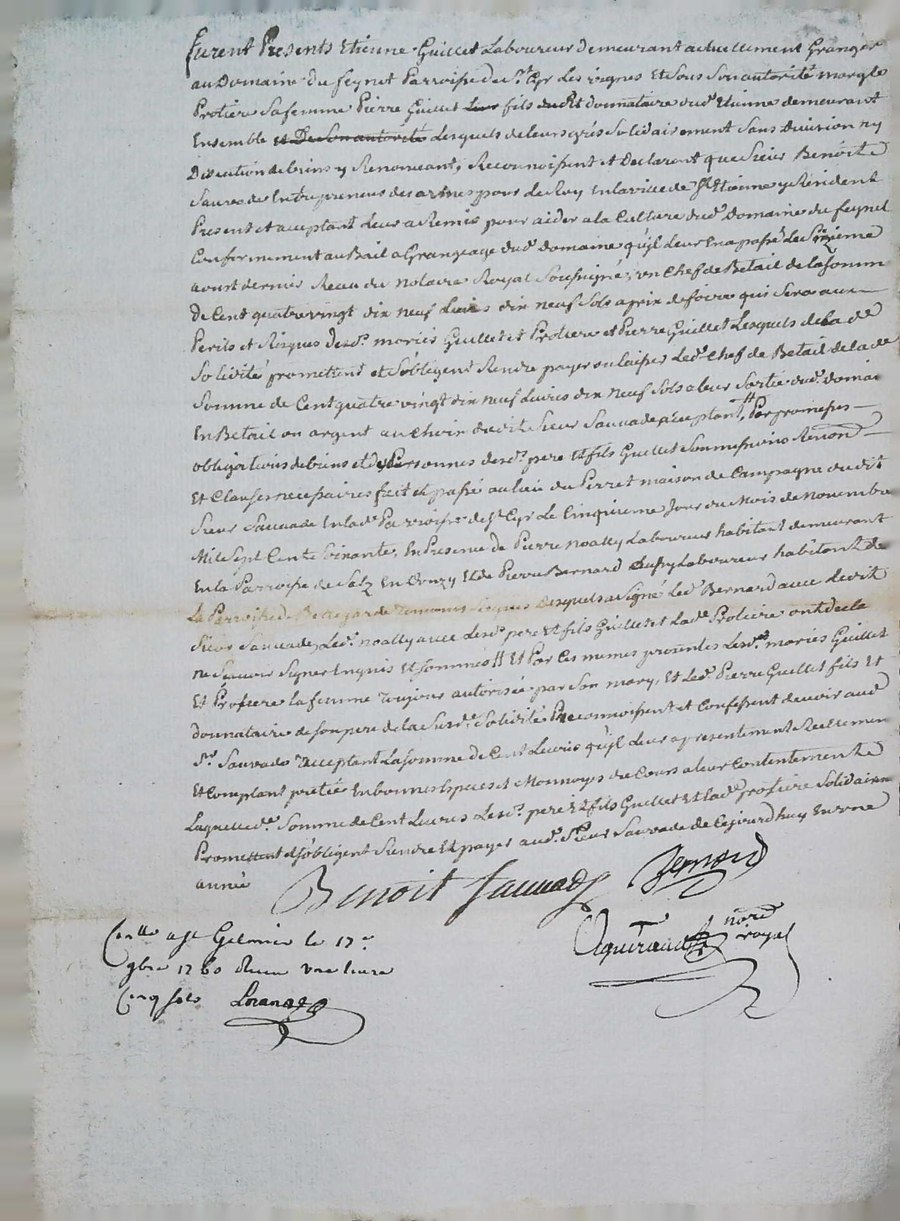 furent Presents Etienne Guillet Laboureur Demeurant actuellement Granger
au Domaine du feynet Parroisse du St Cyr Les vignes Et Sous Son autorité margte
Protiere Sa femme Pierre Guillet Leur fils donataire dud. Etienne demeurant
Ensemble et De Son autorité Lesquels de Leurs grés Solidairement Sans Division ny
Discution de biens y Renonceant, Reconnoissent et Declarent que Sieur Benoite
Sauvade Entrepreneur des armes pour Le Roy En la ville de St Etienne y Résident
Present et aceptant Leur a Remis pour aider a la Culture dud. Domaine du feynet
Conformement au Bail a Grangeage dud. domaine qu'jl Leur En a passé Le Sixieme
aoust dernier Receu du notaire Royal Soussigné, un Chef de Betail de la Somme
de Cent quatre vingt dix neuf Livres dix neuf Sols a prix de foire qui Sera aux
Perils et Risques desd. mariés Guillet et Protiere et Pierre Guillet Lesquels de La de
Solidité promettent et S'obligent Rendre payer ou laisser Led. Chef de Betail de la de
Somme de Cent quatre vingt dix neuf Livres dix neuf Sols a leur Sortie dud. domai
En Betail ou argent au Choix dudit Sieur Sauvade aceptant, Par promesses
obligations de biens et de Personnes desd. pere Et fils Guillet Soummissions Renon
Et Clauses necessaires fait et passé au lieu du Perret maison de Campagne dudit
Sieur Sauvade En lad. Parroisse de St Cyr Le Cinquieme Jour du Mois de Novembre
Mil Sept Cent Soixante, En Presence de Pierre noally Laboureur habitant demeurant
En la Parroisse de Salz En Donzy Et de Pierre Bernard Laboureur habitant de
La Parroisse de Bellegarde Temoins Requis Desquels a Signé Led. Bernard avec Ledit
Sieur Sauvade, Led. noally avec Lesd. pere Et fils Guillet et Lad. Protiere ont decla
ne Scavoir Signer Enquis et Sommés Et Par Ces memes presentes Lesd. mariés Guillet
Et Protiere La femme Toujours autorisée par Son mary, Et Led. Pierre Guillet fils Et
donnataire de Son pere de la Susd. Solidité Reconnoissent et Confessent devoir aud
Sr. Sauvade aceptant La Somme de Cent Livres qu'jl Leur a presentement Reellemen
Et Comptant pretée En bonnes Especes et Monnoyes de Cours a leur Contentement
Laquelle d. Somme de Cent Livres Lesd. pere Et fils Guillet Et Lad. protiere Solidairem
Promettent et S'obligent Rendre Et payer aud. Sieur Sauvade de Cejourd'huy En une
année
Benoit Sauvade Bernard
nore royal
Conlle a St Gelmier le 17e
9bre 1760 Reçu une livre
Cinq sols